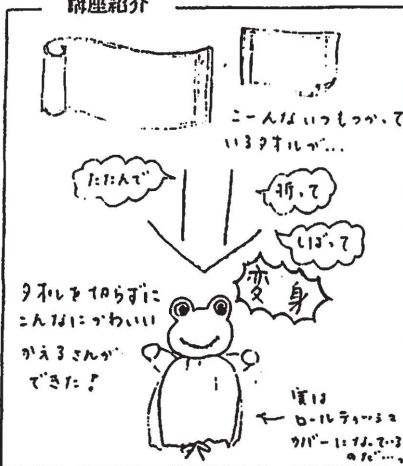 講座紹介
こーんないつもつかって
いるタオルが...
たたんで
折って
しばって
変身
タオルを切らずに
こんなにかわいい
かえるさんが
できた!
実は
← ロールティッシュ
カバーになっている
のだ...